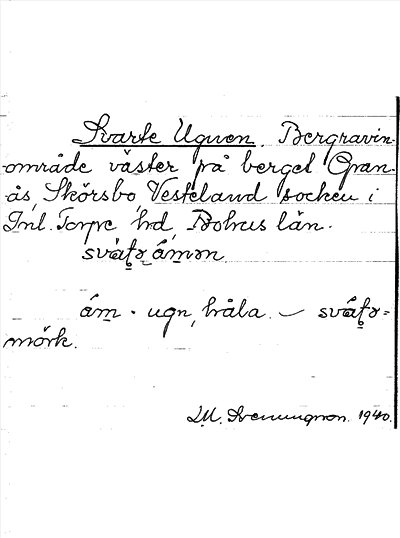 Svarte Ugnen. Bergravin-
område väster på berget Gran-
ås, Skörsbo, Vesteland socken i
Inl. Torpe hd, Bohus län.
svát̯ə ámən.
ám = ugn, håla. – svát̯ə =
mörk.
1940.